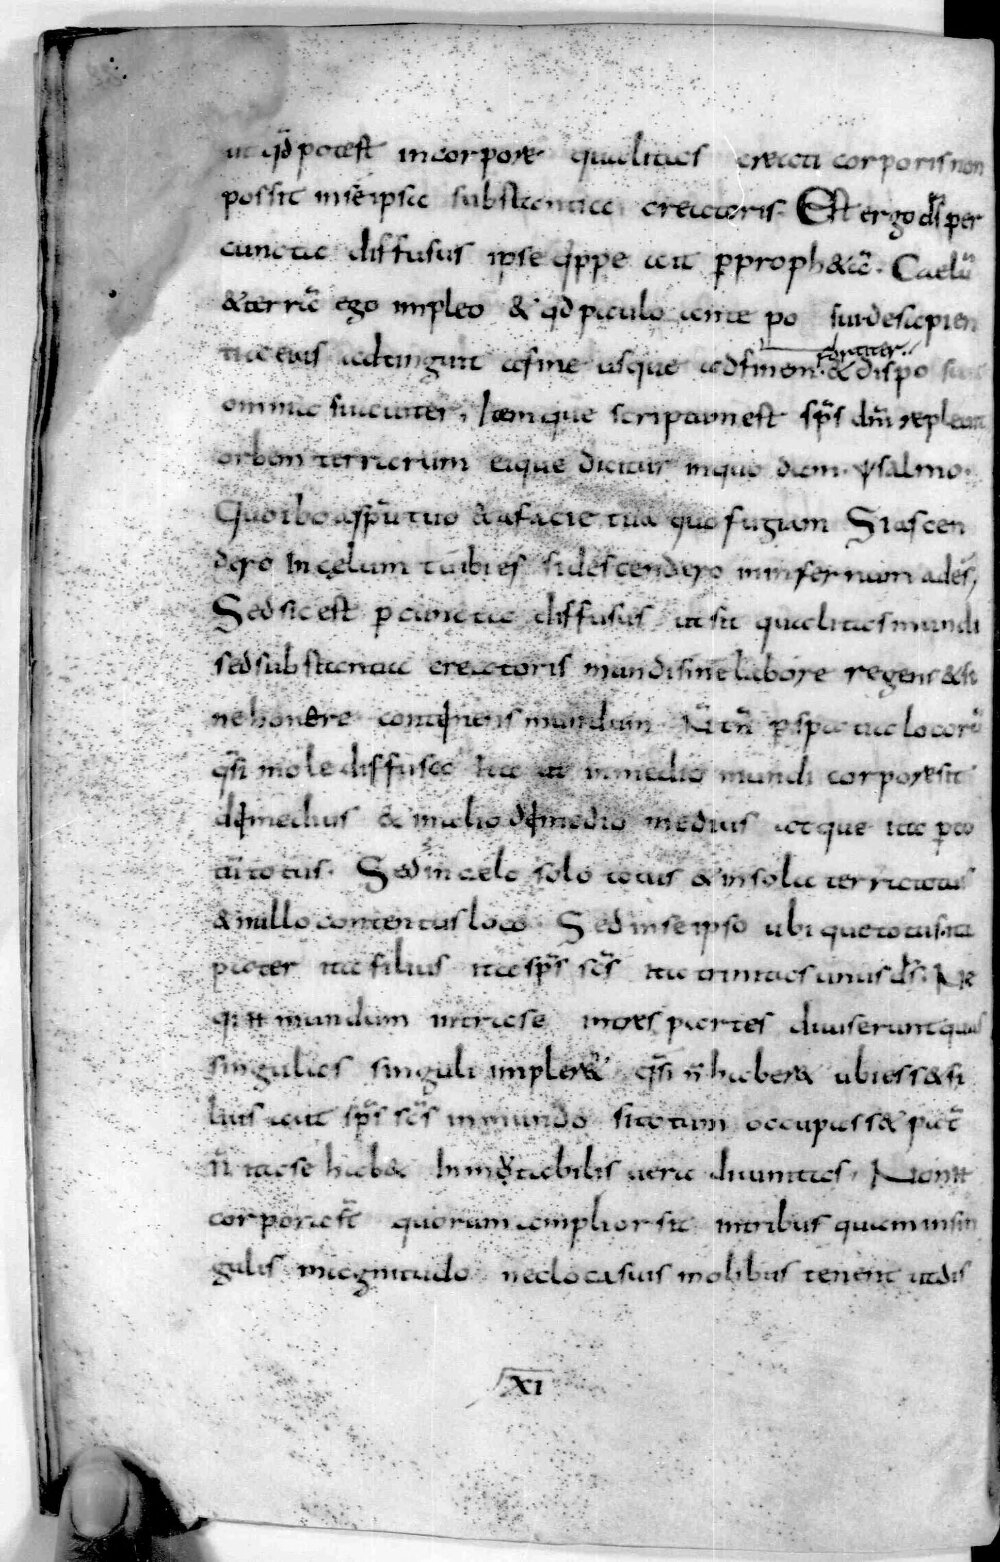 ut qđ potest incorpore qualitas creati corporis non
possit inseipsa substantia creatoris. Est ergo dš per
cuncta diffusus ipse q̄ppe ait p̱proph&ā. Caelū
& terrā ego impleo & qđ paulo ante po sui de sapien
tia eius adtingit afine usque adfinem fortiter. & dispo
omnia suauiter, Itemque scriptum est sp̄s dn̄i repleuit
orbem terrarum eique dicitur inquodam psalmo.
Quo ibo asp̄u tuo & afacie tua quo fugiam Siascen
dero Incęlum tu ibi es sidescendero ininfernum ades,
Sed sic est p̱ cuncta diffusus ut sit qualitas mundi
sed substantia creatoris mundi sine labore regens & si
ne honere continens mundum Nō tn̄ p̱ spatia locorū
q̄si mole diffusa Ita ut inmedio mundi corpore sit
dimedius & in alio dimedio medius atque ita p̱ to
tū totus. Sed in caelo solo totus & in sola terra totus
& nullo contentus loco Sed in se ipso ubique totus. ita
pater ita filius ita sp̄s sc̄s ita trinitas unus dš. Ne
mundum intra se intres partes diuiserunt quas
singulas singuli impler& q̄si n̄ haber& ubi ess& fi
lius aut sp̄s sc̄s inmundo si totum occupass& pat̄
n̄ ita se hab& Inmutabilis uera diuinitas. Non
corpora st̄ quorum amplior sit intribus quam insin
gulis magnitudo nec loca suis molibus tenent ut dis
XI